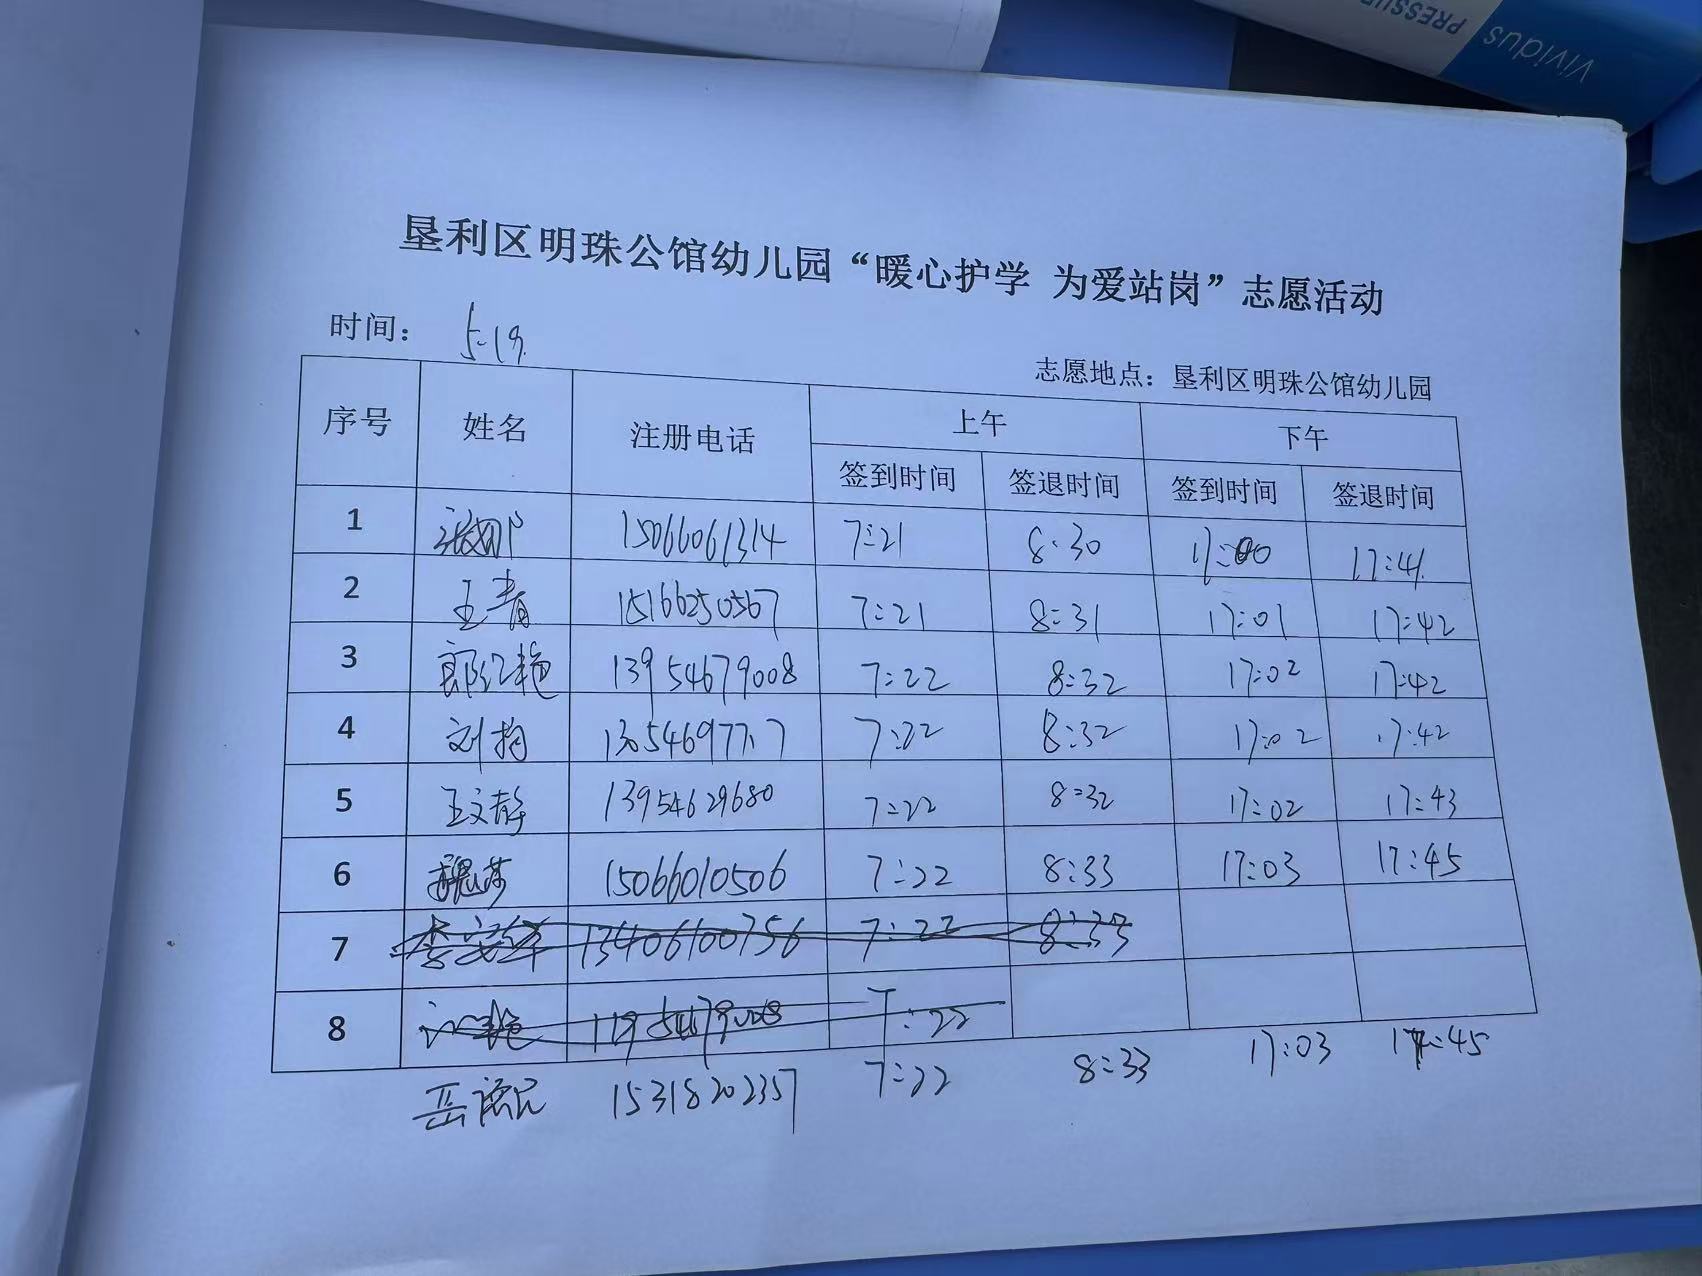 PRESSU
vividus
垦利区明珠公馆幼儿园“暖心护学 为爱站岗”志愿活动
时间： 5.19.
志愿地点：垦利区明珠公馆幼儿园
序号 姓名 注册电话 上午 下午
签到时间 签退时间 签到时间 签退时间
1 15066061314 7:21 8:30 17:00 17:41
2 王青 15166250567 7:21 8:31 17:01 17:42
3 郭红艳 13954679008 7:22 8:32 17:02 17:42
4 7:22 8:32 17:02 17:42
5 王文静 13954629680 7:22 8:32 17:02 17:43
6 魏莎 15066010506 7:22 8:33 17:03 17:45
7 13406100756 7:22 8:33
8 7:22
岳德民 15318202357 7:22 8:33 17:03 17:45